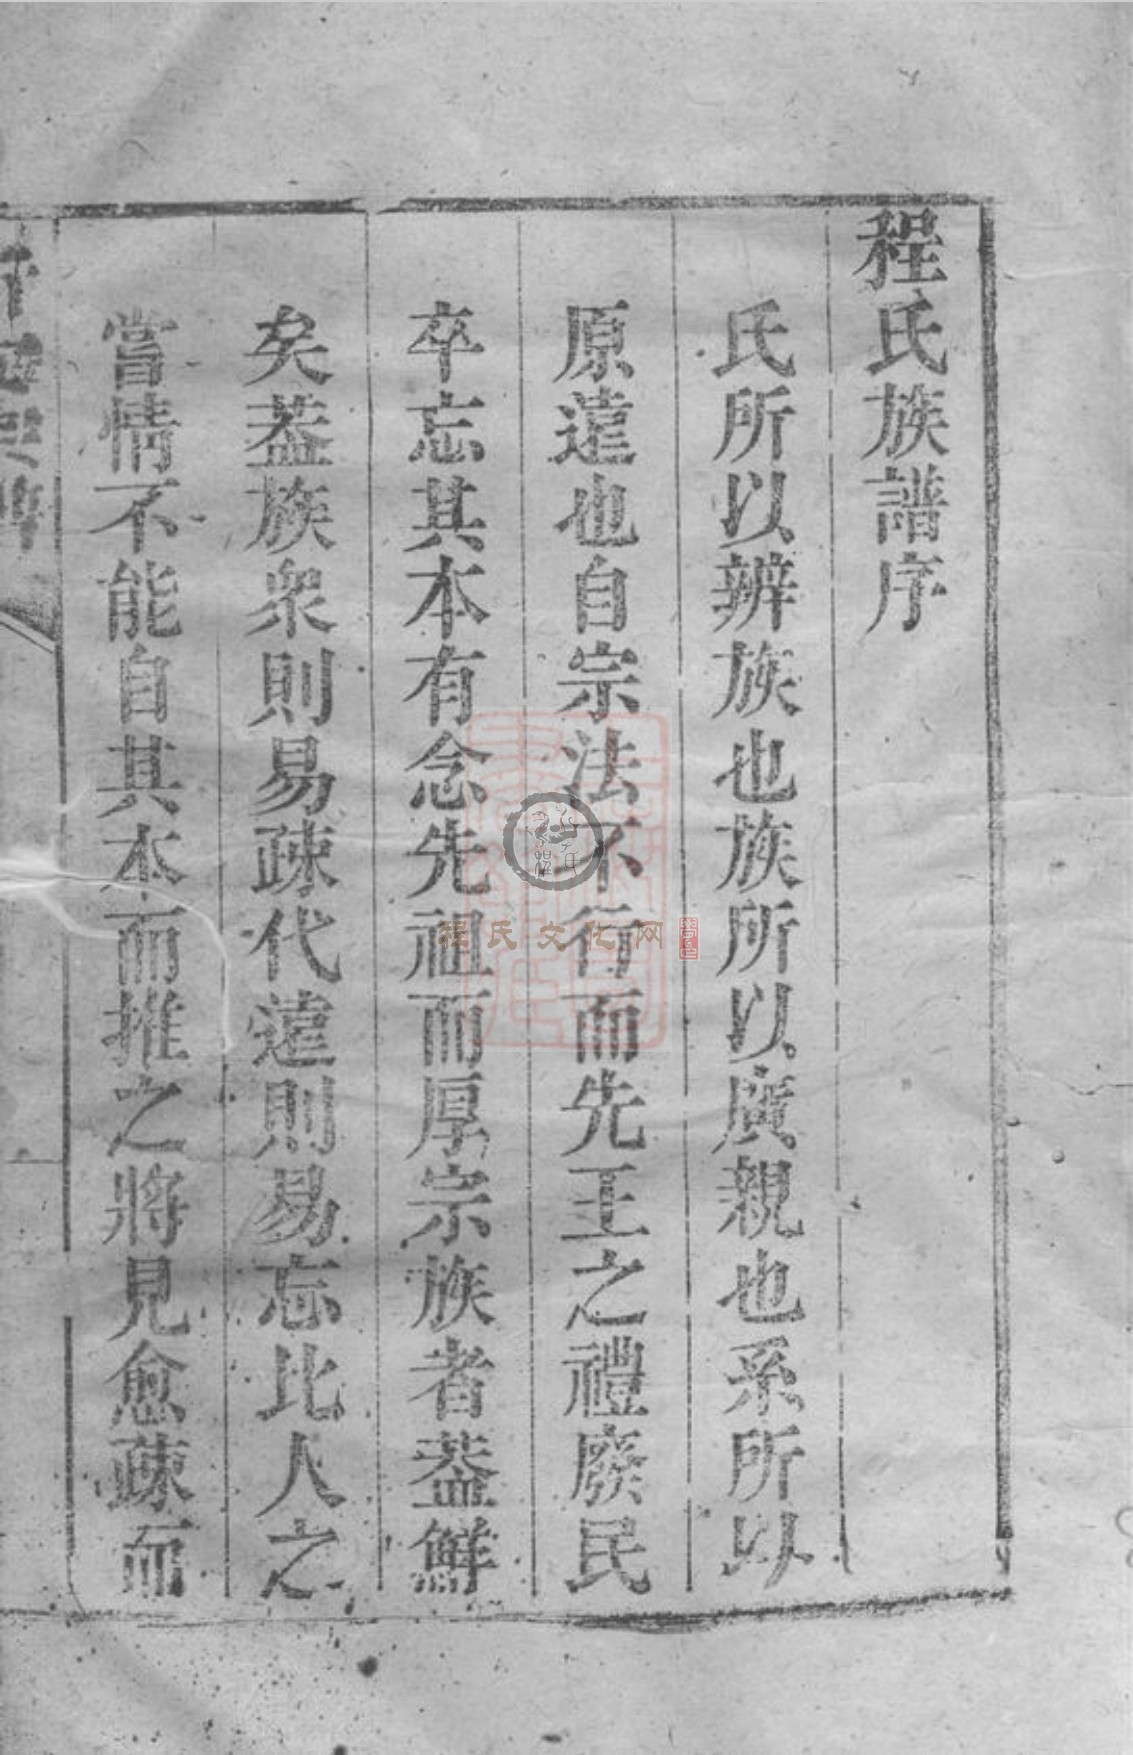 程氏族譜序
氏所以辨族也族所以廣親也系所以
原遠也自宗法不行而先王之禮廢民
卒忘其本有念先祖而厚宗族者葢鮮
矣葢族衆則易疎代遠則易忘比人之
嘗情不能自其本而推之將見愈疎而
程氏文化网